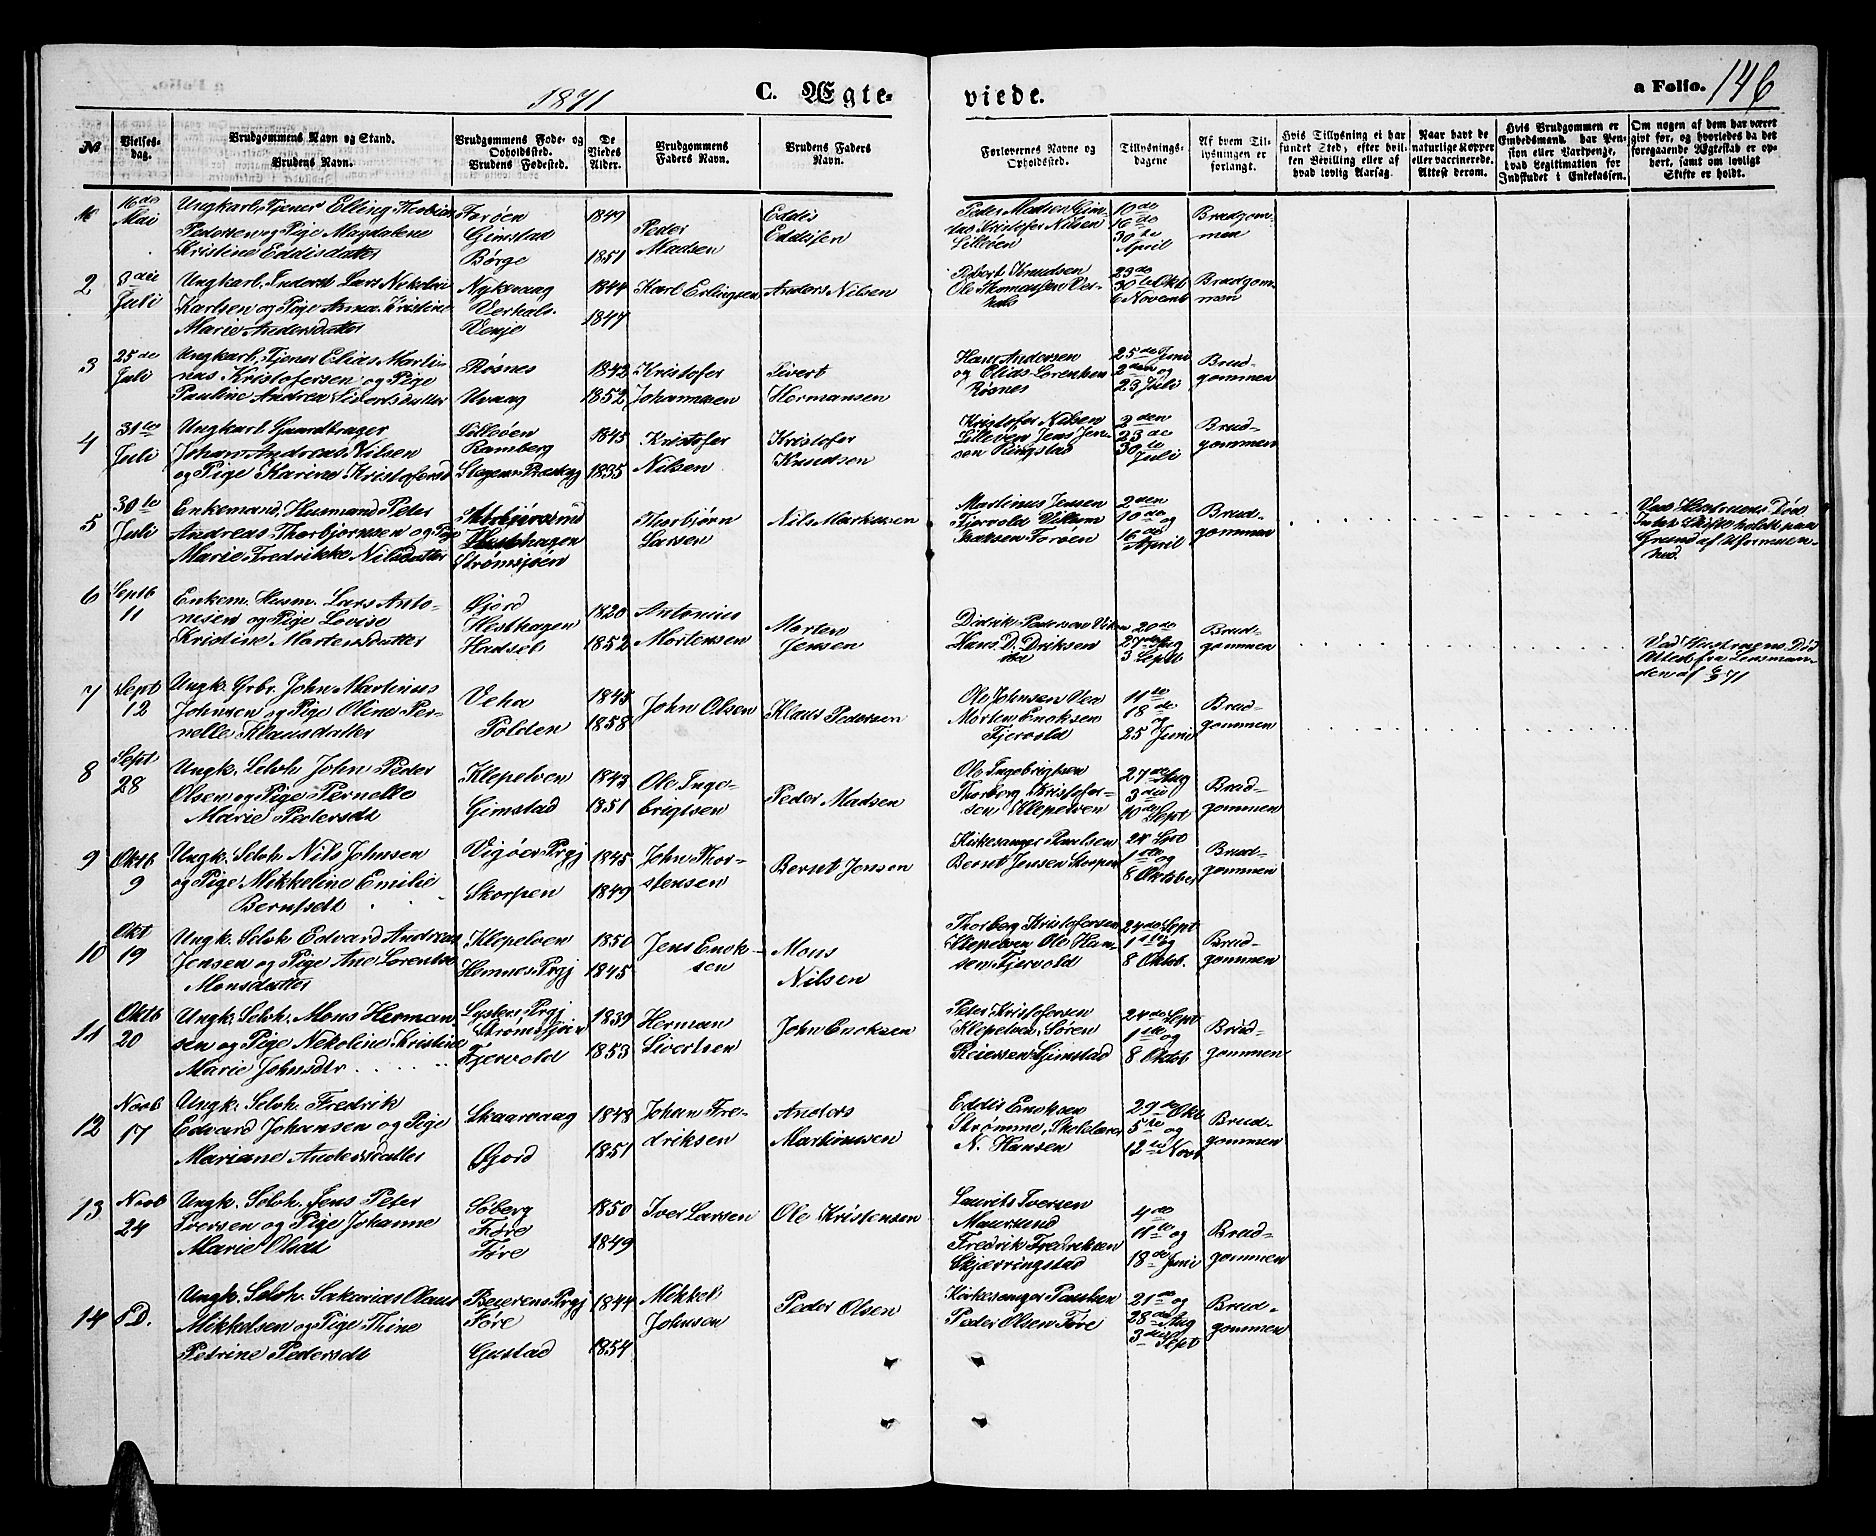 1871
C. Ægte-
viede.
a Folio. 146
№
Vielses-
dag.
Brudgommens Navn og Stand.
Brudens Navn.
Brudgommens Føde- og
Opholdssted.
Brudens Fødested.
De
Viedes
Alder.
Brudgommens
Faders Navn.
Brudens Faders
Navn.
Forlovernes Navne og
Opholdssted.
Tillysnings-
dagene
Af hvem Til-
lysningen er
forlangt.
Hvis Tillysning ei har
fundet Sted, efter hvil-
ken Bevilling eller af
hvad lovlig Aarsag.
Naar havt de
naturlige Kopper
eller vaccinerede.
Attest derom.
Hvis Brudgommen er
Embedsmand, har Pen-
sion eller Vartpenge,
hvad Legitimation for
Indskudet i Enkekassen.
Om nogen af dem har været
givt før, og hvorledes da det
foregaaende Ægteskab er op-
hørt, samt om lovligt
Skifte er holdt.
16de
Mai
Ungkarl, Tjener Elling Thobias
Pedersen og Pige Magdalene
Kristine Eddisdatter
Farøen
Gimstad
Børge
1849
1851
Peder
Madsen
Eddis
Eddisen
Peder Madsen Gim-
stad Kristofer Nilsen
Lilleøen
10de
16de
30te
April
Brudgom-
men
2
8die
Juli
Ungkarl, Inderst Lars Nikolai
Karlsen og Pige Anna Kristine
Marie Andersdatter
Nykvaag
Verhals
Venje
1844
1847
Karl Erlingsen
Anders Nilsen
Robert Knudsen
Ole Thomassen Ver-
hals
23de
30te Oktb
6 Novemb
Brudgom-
men
3
25de
Juli
Ungkarl, Tjener Elias Marti-
nus Kristofersen og Pige
Pauline Andrea Sivertsdatter
Røsnes
Uvaag
1842
1852
Kristofer
Johannesen
Sivert
Hermansen
Hans Andersen
og Olids Lorentsen
Røsnes
25de Juni
2den og
23 Juli
Brud-
gommen
4
31te
Juli
Ungkarl, Gaardbruger
Johan Andreas Nilsen
og Pige Karine Kristofersd
Lilleøen
Ramberg
Stegens Præstegj
1845
1835
Kristofer
Nilsen
Kristofer
Knudsen
Kristofer Nilsen
Lilleøen Jens Jen-
sen Ringstad
2den
23de
30te
Juli
Brud-
gommen
5
30te
Juli
Enkemand, Husmand Peter
Andreas Thorbjørnsen og Pige
Marie Fredrikke Nilsdatter
Hesthagen
Strømsjøen
Thorbjørn
Larsen
Nils Markussen
Martinus Jensen
Fjervold Vilhem
Isaksen Farøen
2den
10de og
16de
April
Brud-
gommen
Ved Hustruens Død
Intet Skifte holdt paa
Grund af Uformuen-
hed.
6
Septb
11
Enkem. Husm. Lars Anto-
nisen og Pige Lovise
Kristine Mortensdatter
Øjord
Hesthagen
Hadsel
1820
1852
Antonius
Mortensen
Morten
Jensen
Didrik Pedersen Viken
Hans D. Driksen
20de
27de Aug
3 Septb
Brud-
gommen
Ved Hustruens Død
Attest fra Lensman-
den af 6/3 71
7
Sept
12
Ungk. Grbr. John Martinus
Johnsen og Pige Oline Per-
nelle Klausdatter
Veha
Polden
1845
1858
John Olsen
Klaus Pedersen
Ole Johnsen Vea
Morten Enoksen
Fjervold
11te
18de
25 Juni
Brud-
gommen
8
Sept
28
Ungk. Selvh. John Peder
Olsen og Pige Pernelle
Marie Pedersdt
Klepelven
Gimstad
1843
1851
Ole Inge-
brigtsen
Peder Madsen
Ole Ingebrigtsen
Thorberg Kristofer-
sen Klepelven
27de Aug
3die
10de Sept
Brud-
gommen
9
Oktb
9
Ungk. Selvh. Nils Johnsen
og Pige Mikkeline Emilie
Berntsdt
Vigøer Prgj
Skorpen
1845
1849
John Thor-
stensen
Bernt Jensen
Kirkesanger Paulsen
Bernt Jensen Skorpen
24 Sept
1ste og
8 Oktober
Brud-
gommen
10
Okt
19
Ungk. Selvh Edvard Andreas
Jensen og Pige Ane Lorentse
Monsdatter
Klepelven
Hemnes Prgj
1850
1845
Jens Enok-
sen
Mons
Nilsen
Thorberg Kristofersen
Klepelven Ole Han-
sen Fjervold
24de Sept
1ste og
8 Oktob.
Brud-
gommen
11
Oktb
20
Ungk. Selvh. Mons Herman-
sen og Pige Nekoline Kristine
Marie Johnsdtr
Lysters Prgj
Strømsjøen
Fjervold
1839
1853
Herman
Sivertsen
John Enoksen
Peter Kristofersen
Klepelven Søren
Reiersen Gimstad
24de Sept
1ste og
8 Oktob
Brud-
gommen
12
Novb
17
Ungk. Selvh. Fredrik
Edvard Johansen og Pige
Mariane Andersdatter
Skaarvaag
Øjord
1848
1851
Johan Fre-
driksen
Anders
Martinussen
Eddis Enoksen
Strømme, Skolelærer
N. Hansen
29de Okt
5te og
12te Novb
Brud-
gommen
13
Novb
24
Ungk. Selvh. Jens Peter
Iversen og Pige Johanne
Marie Olsdt
Søberg
Føre
Føre
1850
1849
Iver Larsen
Ole Kristensen
Laurits Iversen
Maursund
Fredrik Fredriksen
Skjærringstad
4de
11te og
18de Juni
Brud-
gommen
14
S.D.
Ungk. Selvh. Sakarias Olaus
Mikkelsen og Pige Thine
Petrine Pedersdt
Beierens Prgj
Føre
Gustad
1844
1854
Mikkel
Johnson
Peder Olsen
Kirkesanger Paulsen
Peder Olsen Føre
21de og
28de Aug
3die Sept
Brud-
gommen